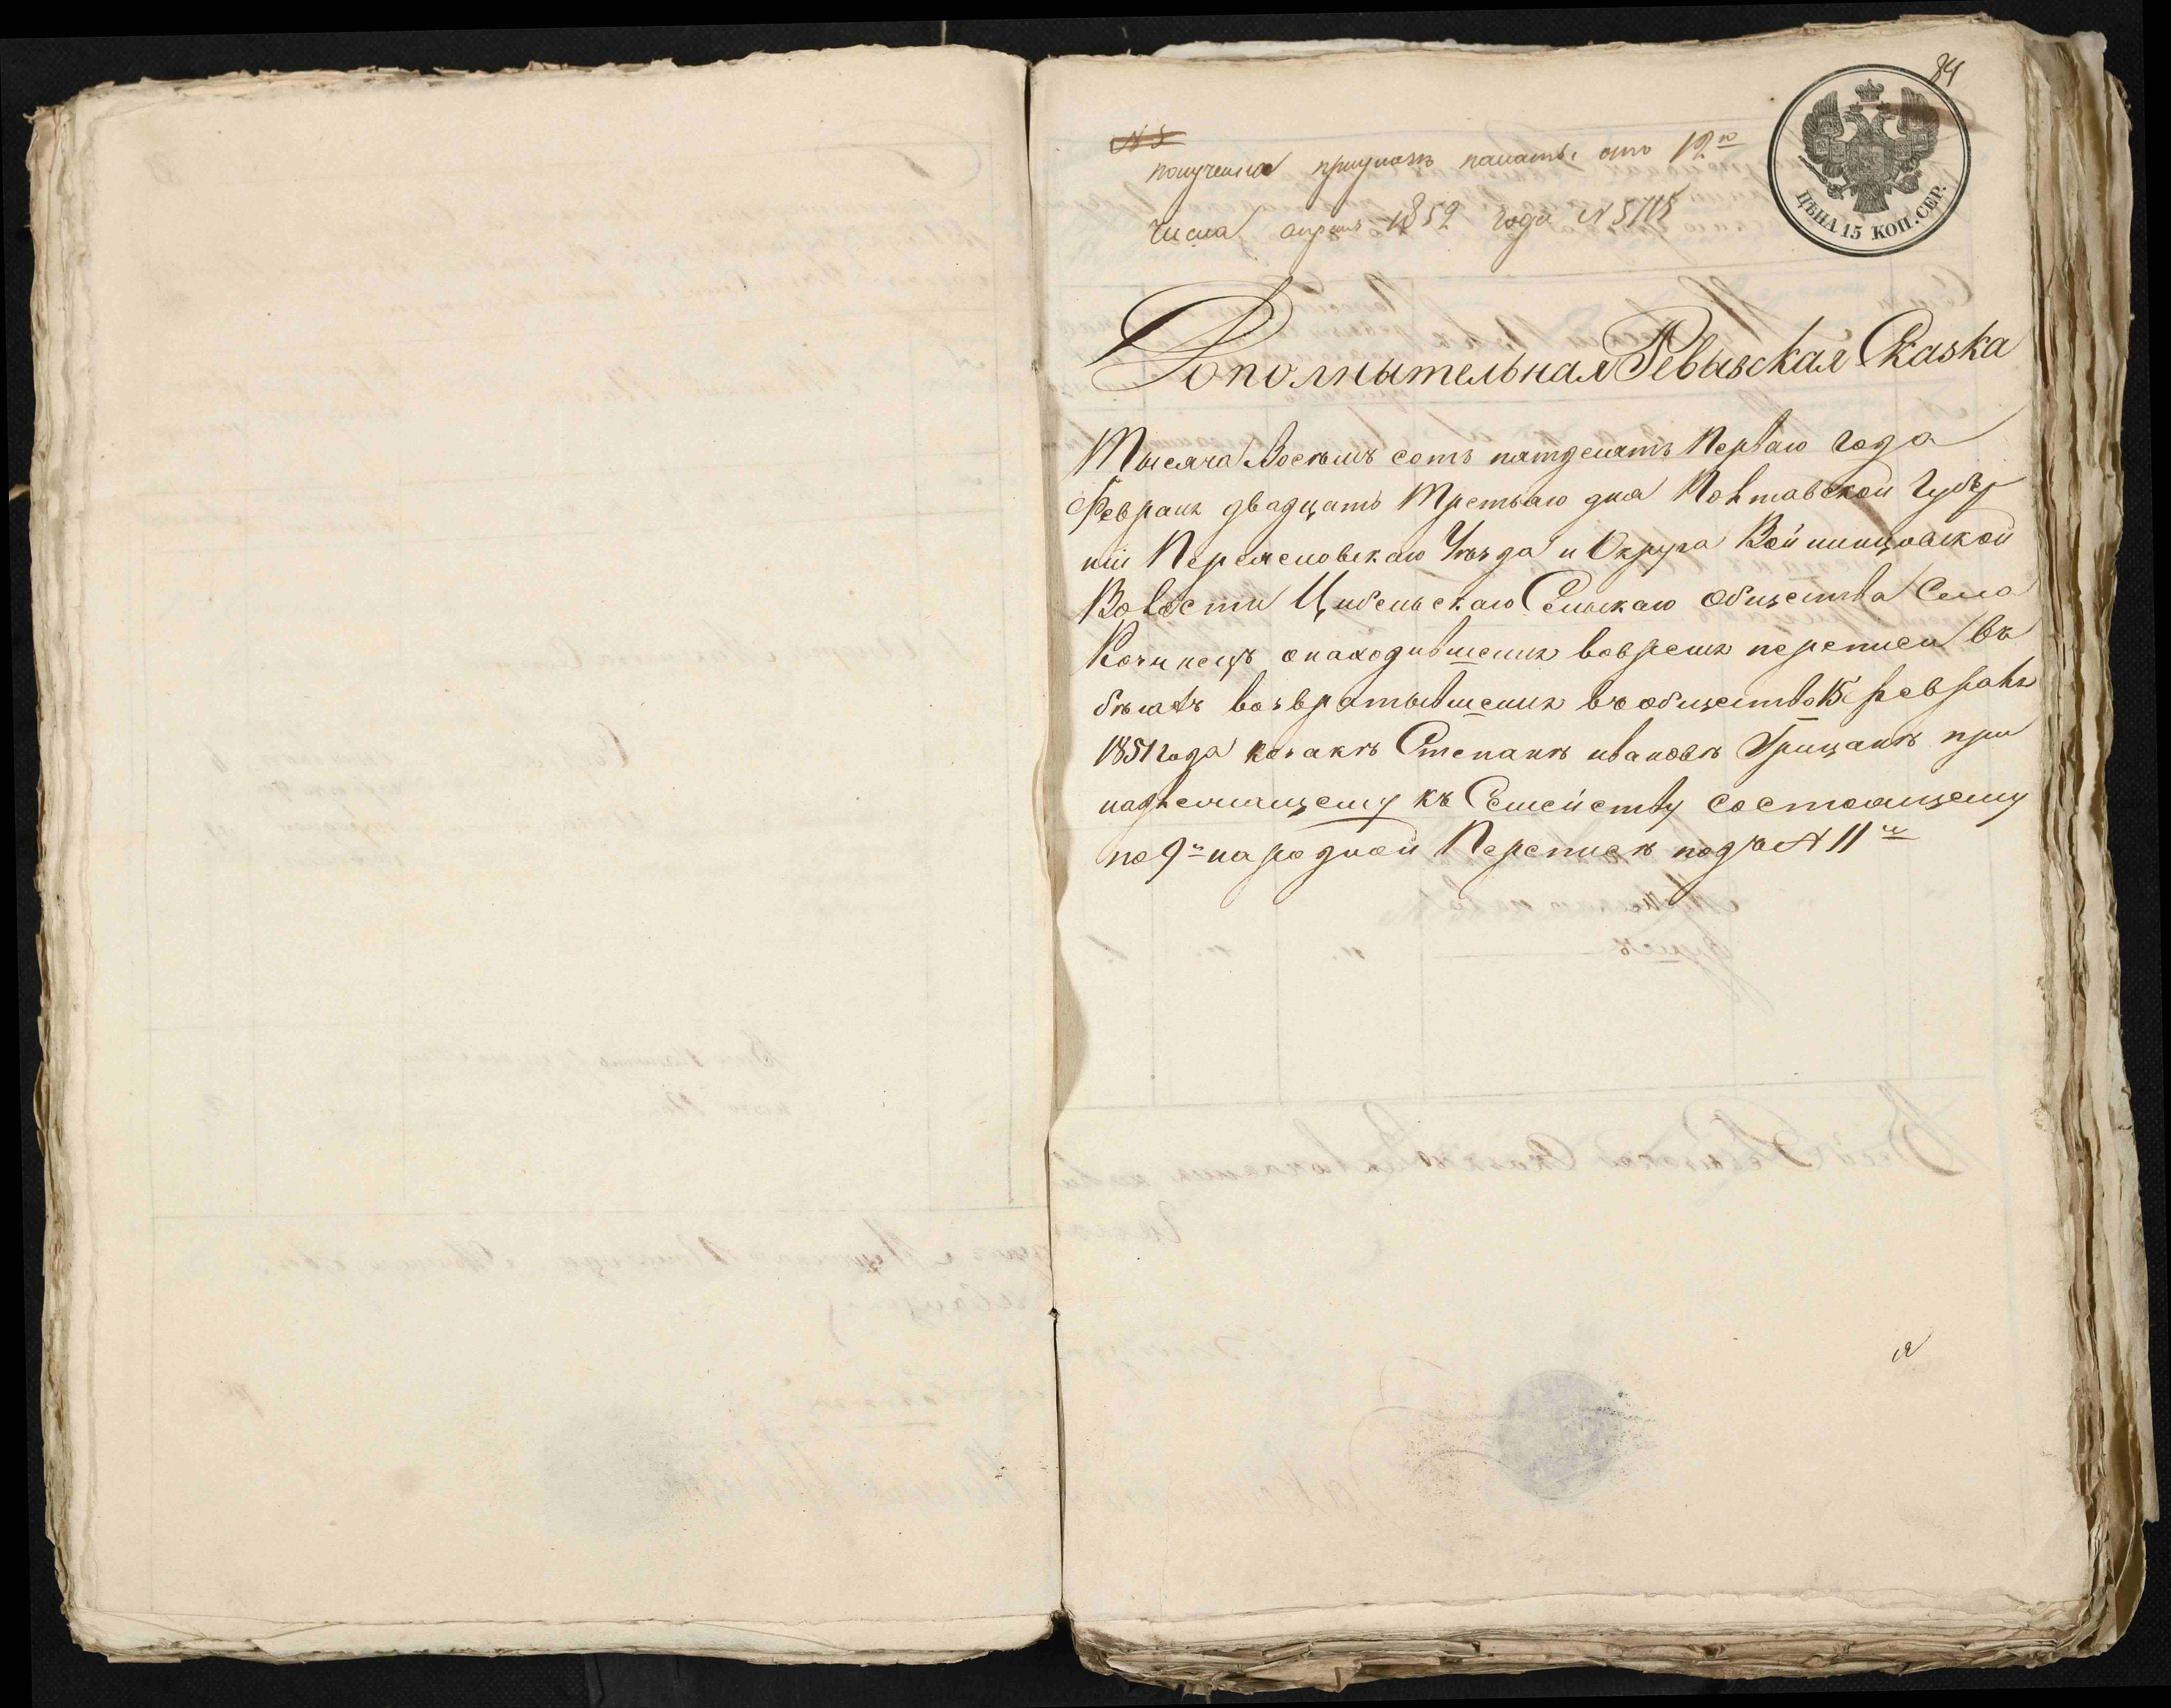 84
ЦѢНА 15 КОП. СЕР.
№ 5
получена при указѣ палаты отъ 12го
числа апреля 1852 года № 5715
Дополнытельная Ревызская Сказка
Тысяча Восемъ сотъ пятдесятъ Перваго года
Февраля двадцать Третьяго дня Полтавской Губѣр
ніи Переяславскаго Уѣзда и Округа Войтинцовской
Воlости Цибельскаго Сельскаго Общества Села
Кочинецъ онаходившемся вовремя переписи въ
бѣгахъ возвратывшемся въ общество 15 февраля
1851 года козакѣ Степанѣ ивановѣ Грицанѣ при
надлежащему къ Семейству состоящему
по 9й народной Переписѣ подъ № 11м